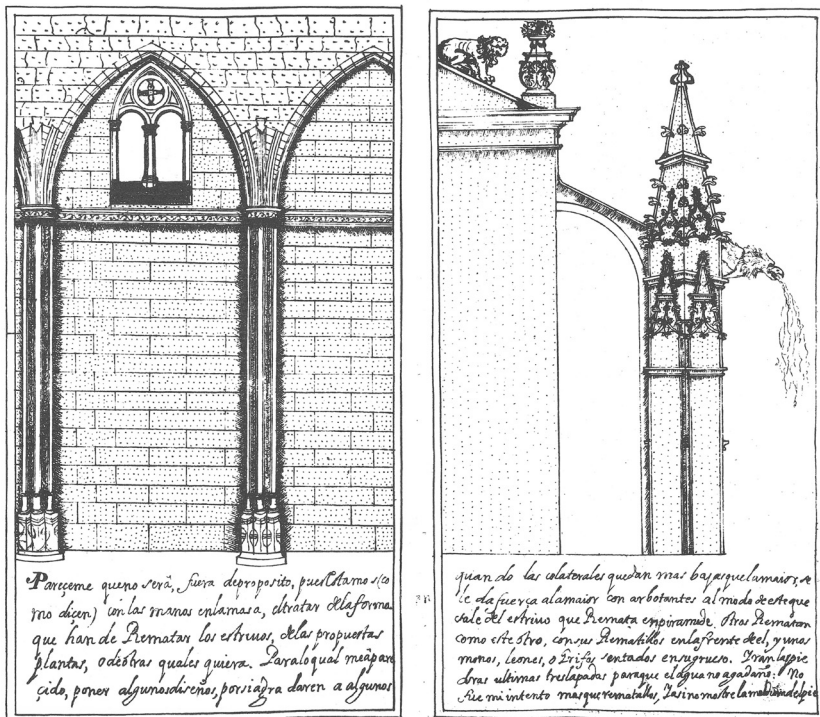 Pareçeme queno serâ, fuera deproposito, puesEstamos (co
mo dicen) con las manos enlamasa, eltratar delaforma
que han de Rematar los estrivos, delas propuestas
plantas, odeotras quales quiera. Paraloqual meàpare
çido, poner algunosdiseños, porsiagradaren a algunos
quando las colaterales quedan mas bajasquelamaior, se
le da fuerça alamaior con arbotantes almodo deesteque
sale del estrivo que Remata enpiramide. otros Rematan
como este otro, consus Rematillos enlafrente deel, yunos
monos, leones, o Grifos sentados ensugrueso. Yranlaspie
dras ultimas treslapadas paraque elagua nohagadaño. No
fue miintento masquerematallos,